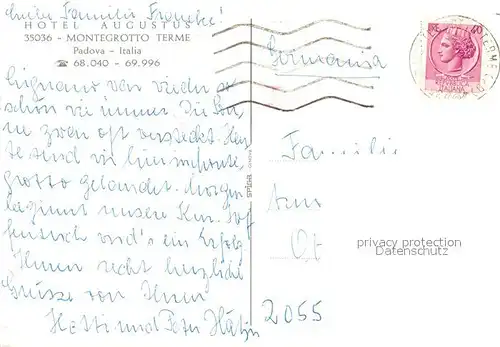 Liebe Familie Francke!
HOTEL AUGUSTUS
35036 - MONTEGROTTO TERME
Padova - Italia
☎ 68.040 - 69.996
Germania
Lignano war wieder
schön wie immer. Die Son-
ne zwar oft versteckt. Heu-
te sind wir hier in Monte-
grotto gelandet. Morgen
beginnt unsere Kur. Hof-
fentlich wird's ein Erfolg
Ihnen recht herzliche
Grüsse von Ihren
Hetti und Peter
Familie
privacy protection
by Veikkos
2055